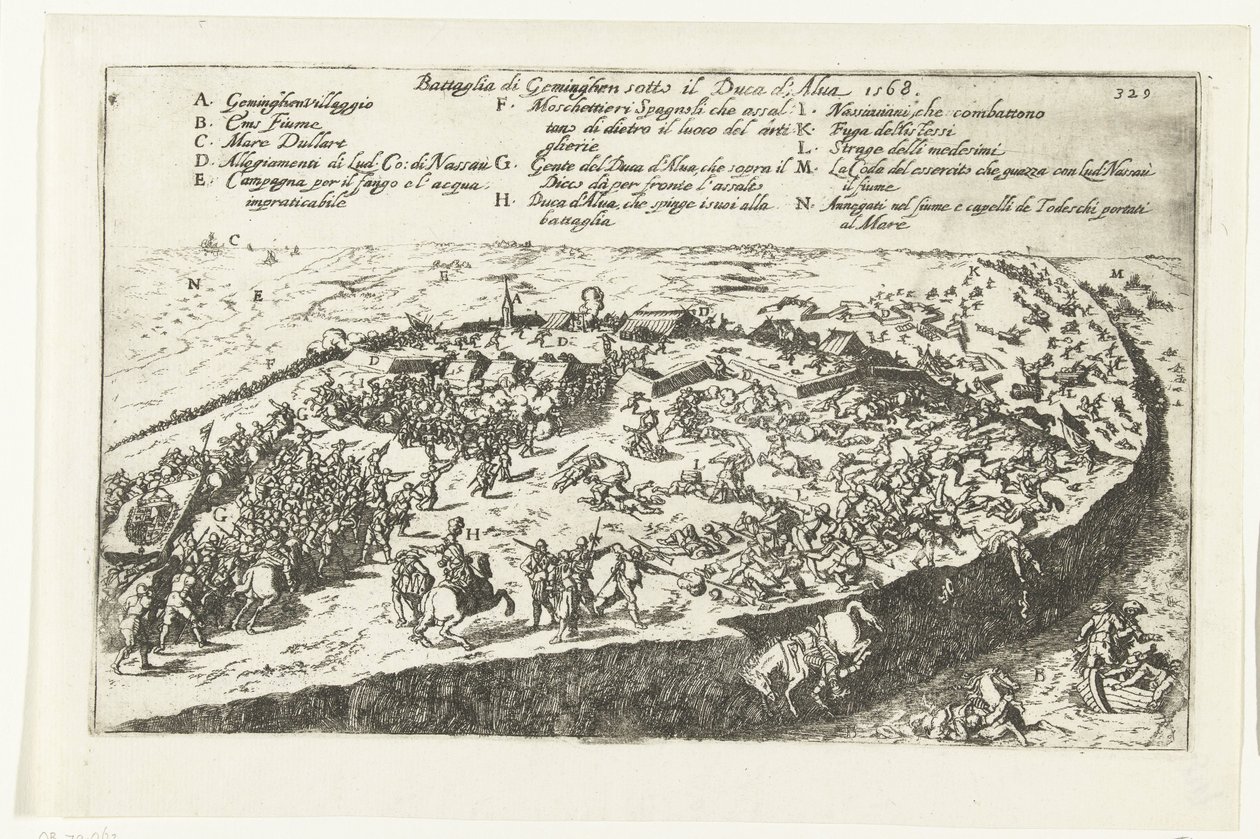 Battaglia di Geminghen sotto il Duca d'Alua 1568.
329
A. Geminghen villaggio
B. Ems Fiume
C. Mare Dullart
D. Allogiamenti di Lud. Co: di Nassau
E. Campagna per il fango e l'acqua
impraticabile
F. Moschettieri Spagnoli che assal:
tano di dietro il luoco del arti
glierie
G. Gente del Duca d'Alua, che sopra il
Dico da per fronte l'assale
H. Duca d'Alua, che spinge i suoi alla
battaglia
I. Nassauiani, che combattono
K. Fuga dell'istessi
L. Strage delli medesimi
M. La Coda del essercito che guazza con Lud. Nassau
il fiume
N. Annegati nel fiume e capelli de Todeschi portati
al Mare
C
N
E
E
A
D
K
M
D
D
D
F
D
L
G
I
G
H
B